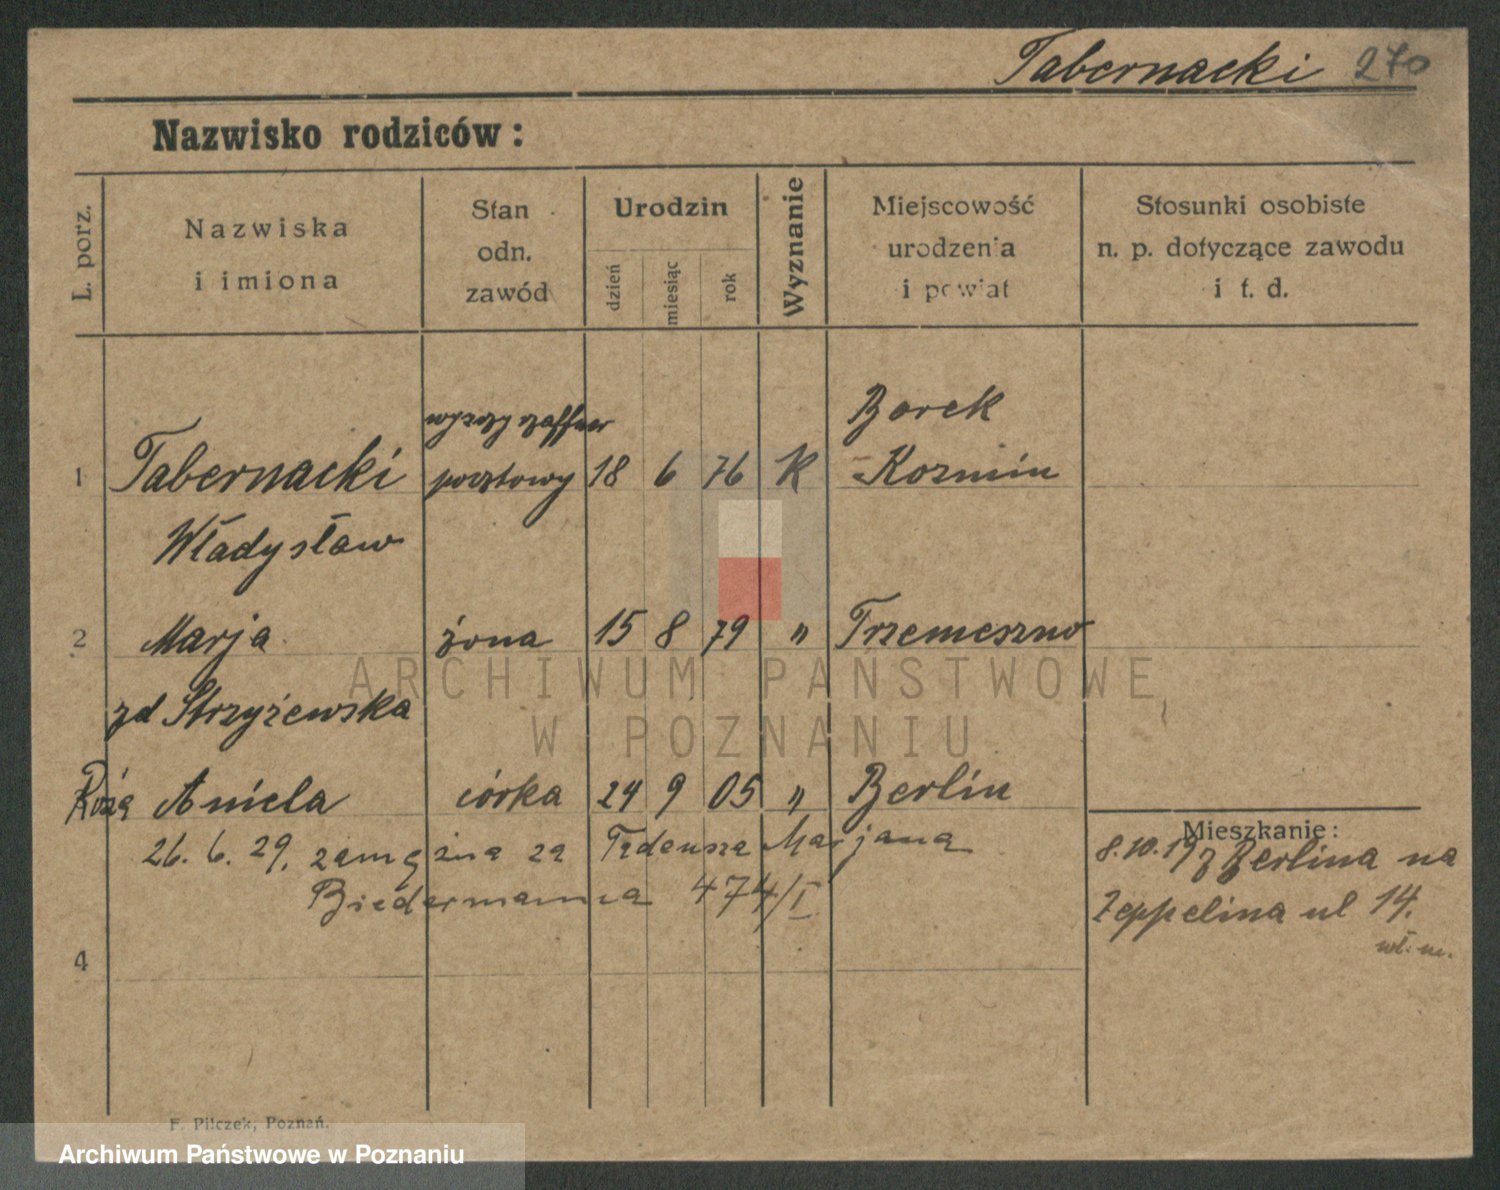 Tabernacki 270
Nazwisko rodziców:
L. porz.
Nazwiska
i imiona
Stan
odn.
zawód
Urodzin
dzień
miesiąc
rok
Wyznanie
Miejscowość
urodzenia
i powiat
Stosunki osobiste
n. p. dotyczące zawodu
i t. d.
Borek
1 Tabernacki pocztowy 18 6 76 K Kozmin
Władysław
2 Marja żona 15 8 79 " Trzemeszno
zd Strzyżewska
Róża Aniela córka 24 9 05 " Berlin
26. 6. 29. zamężna za Tadeusza Marjana
Biedermanna 474/I
Mieszkanie:
8.10.19 z Berlina na
Zeppelina ul 14.
wł. m.
4
F. Pilczek, Poznań.
ARCHIWUM PAŃSTWOWE
W POZNANIU
Archiwum Państwowe w Poznaniu